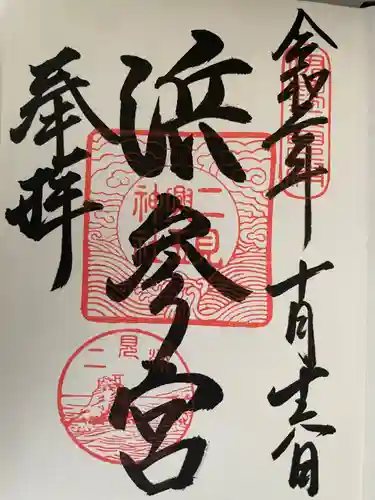 令和元年
十月
日
浜参宮
奉拝
二見
興玉
神社
二見